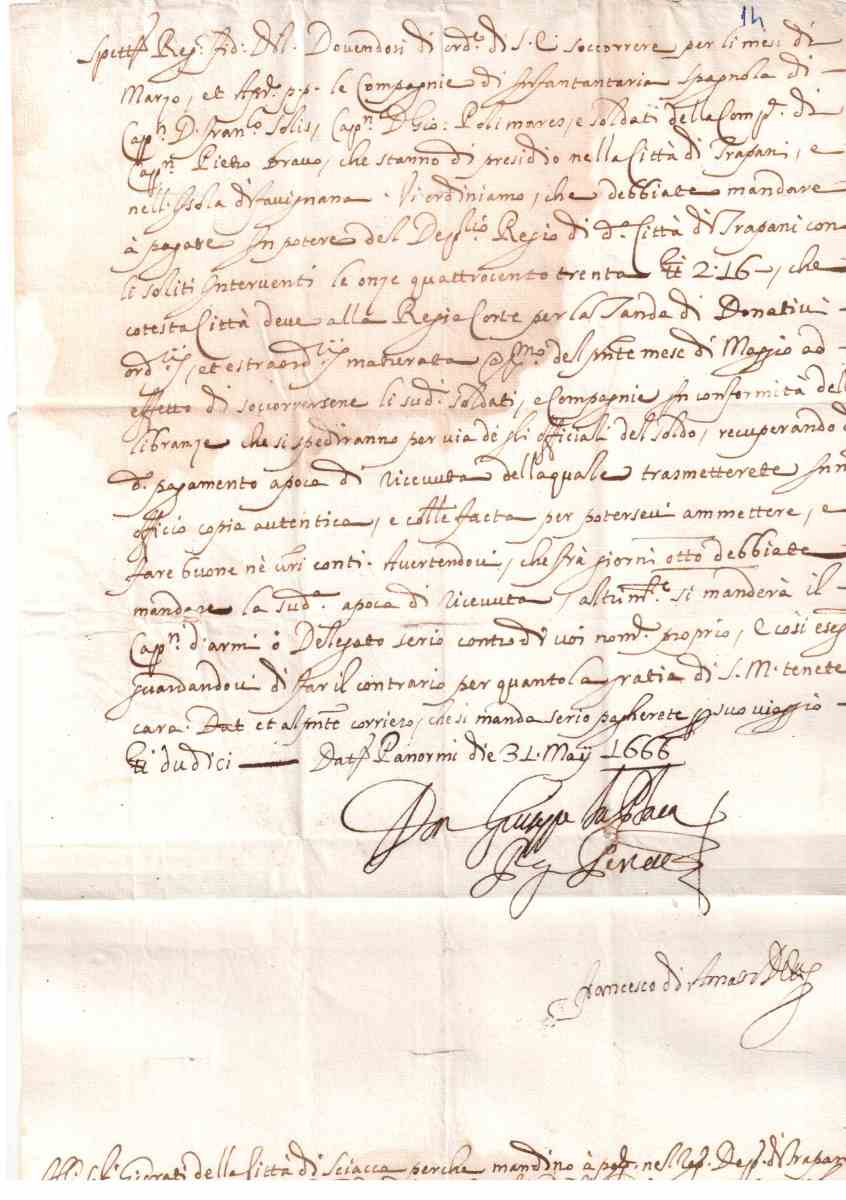 14
Spett. Reg. Fid. Dil. Dovendosi di ord.e di S.E. soccorrere per li mesi di
Marzo, et Apr. p.p. le Compagnie di Infantantaria Spagnola di
Cap.n D. Fran.o Solis, Cap.n D. Gio: Polimares, e soldati della Comp. di
Cap.n Pietro Bravo, che stanno di presidio nella Città di Trapani, e
nell'Isola di Favignana. Vi ordiniamo, che debbiate mandare
à pagare In potere del Dep.rio Regio di d.a Città di Trapani con
li soliti Interventi le onze quattrocento trenta tt 2:16, che
cotesta Città deve alla Regia Corte per la Tanda di Donativi
ord.rij, et estraord.rij maturata del pnte mese di Maggio ad
effetto di soccorrersene li sud.i soldati, e Compagnie In conformità dell
libranze che si spediranno per via de gli officiali del soldo, recuperando d
d. pagamento apoca di ricevuta della quale trasmetterete In
officio copia autentica, e colle facta per potersevi ammettere, e
fare buone nè conti. Avertendovi, che frà giorni otto debbiate
mandare la sud.a apoca di ricevuta, altrim.te si manderà il
Cap.n d'armi ò Delegato serio contro di voi nom. proprio, E così eseg
guardandovi di far il contrario per quanto la gratia di S.M. tenete
cara. Dat et al pnte corriero, che si manda serio pagherete p suo viaggio
tti dudici — Dat. Panormi die 31. Maij 1666
Don Giuseppe
Francesco di Amato
Alli Giorati della Città di Sciacca perche mandino à pag. nel Reg. Dep. di Trapan